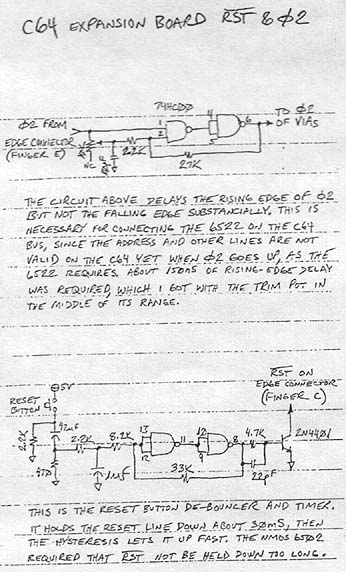 C64 EXPANSION BOARD RST & Ø2
74HC00
Ø2 FROM
EDGE CONNECTOR
(FINGER E)
1
2
4
5
6
TO Ø2
OF VIAs
NC
2.2K
27K
THE CIRCUIT ABOVE DELAYS THE RISING EDGE OF Ø2
BUT NOT THE FALLING EDGE SUBSTANCIALLY. THIS IS
NECESSARY FOR CONNECTING THE 6522 ON THE C64
BUS, SINCE THE ADDRESS AND OTHER LINES ARE NOT
VALID ON THE C64 YET WHEN Ø2 GOES UP, AS THE
6522 REQUIRES. ABOUT 150nS OF RISING-EDGE DELAY
WAS REQUIRED, WHICH I GOT WITH THE TRIM POT IN
THE MIDDLE OF ITS RANGE.
5V
RESET
BUTTON
RST ON
EDGE CONNECTOR
(FINGER C)
2.2K
47Ω
2.2K
8.2K
1µF
13
12
11
10
9
8
33K
4.7K
22pF
2N4401
THIS IS THE RESET BUTTON DE-BOUNCER AND TIMER.
IT HOLDS THE RESET LINE DOWN ABOUT 30mS, THEN
THE HYSTERESIS LETS IT UP FAST. THE NMOS 6502
REQUIRED THAT RST NOT BE HELD DOWN TOO LONG.